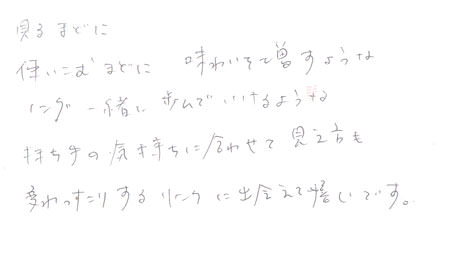 見るまどに
使いこむまどに 味わいそで増すような
リング 一緒に歩んでいけるような
持ち手の気持ちに合わせて見え方も
変わったりするリングに出会えて嬉しいです。